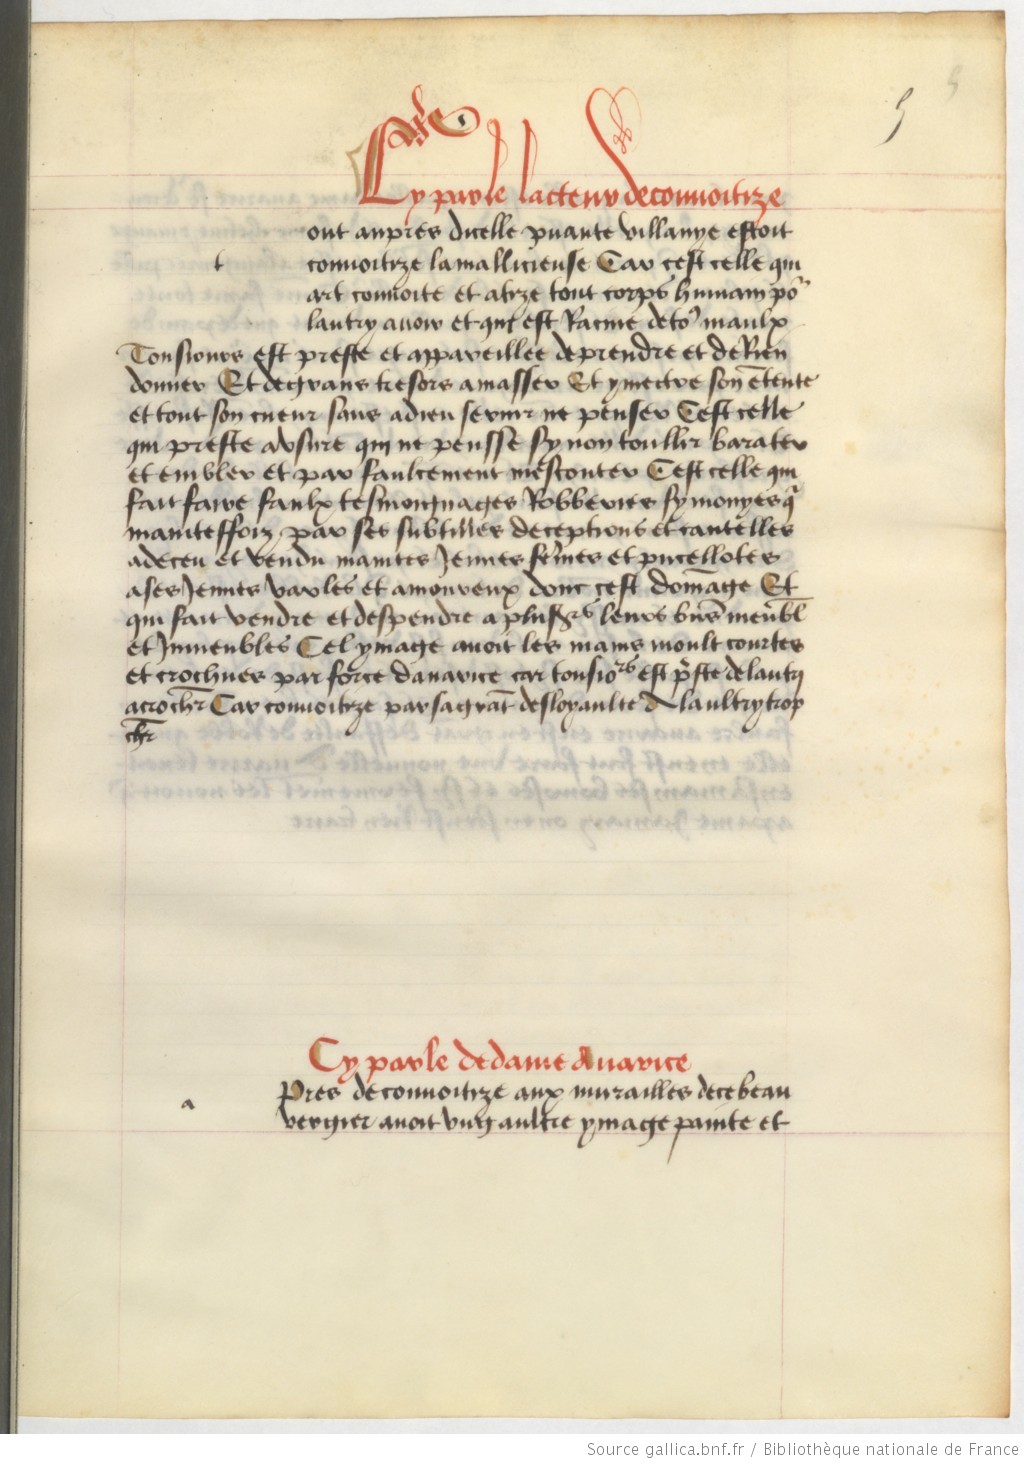 5
Cy parle lacteur de convoitize
out aupres dicelle puante villanye estoit
t
convoitize la mallicieuse Car cest celle qui
art convoite et atize tout corps humain po᷑
lautry avoir et qui est Racine de to᷑ maulx
Tousiours est preste et appareillee de prendre et de Rien
donner Et de grans tresors amasser Et y mectre son ētente
et tout son cueur sans a dieu servir ne pēser Cest celle
qui preste a usure qui ne pensse sy non toullir barater
et embler et par faulcement mesconter Cest celle qui
fait faire faulx tesmoignages Robberies symonyes q̄
mainteffoiz par ses subtilles deceptions et cautelles
a deceu et vendu maintes Jeunes fēmes et pucellotes
a ses Jeunes varles et amoureux donc cest domāge Et
qui fait vendre et despendre a plus᷑s leurs biēs meubl̄
et Inmeubles Cel ymage avoit les mains moult courtes
et crochues par force davarice car tousio᷑s est p̄ste de lautry
acroch̄r Car convoitize par sa grāt desloyaulte A laultry trop
ch̄r
Cy parle de dame Avarice
Pres de convoitize aux murailles de ce beau
a
vergier avoit ung aultre ymage painte et
Source gallica.bnf.fr / Bibliothèque nationale de France